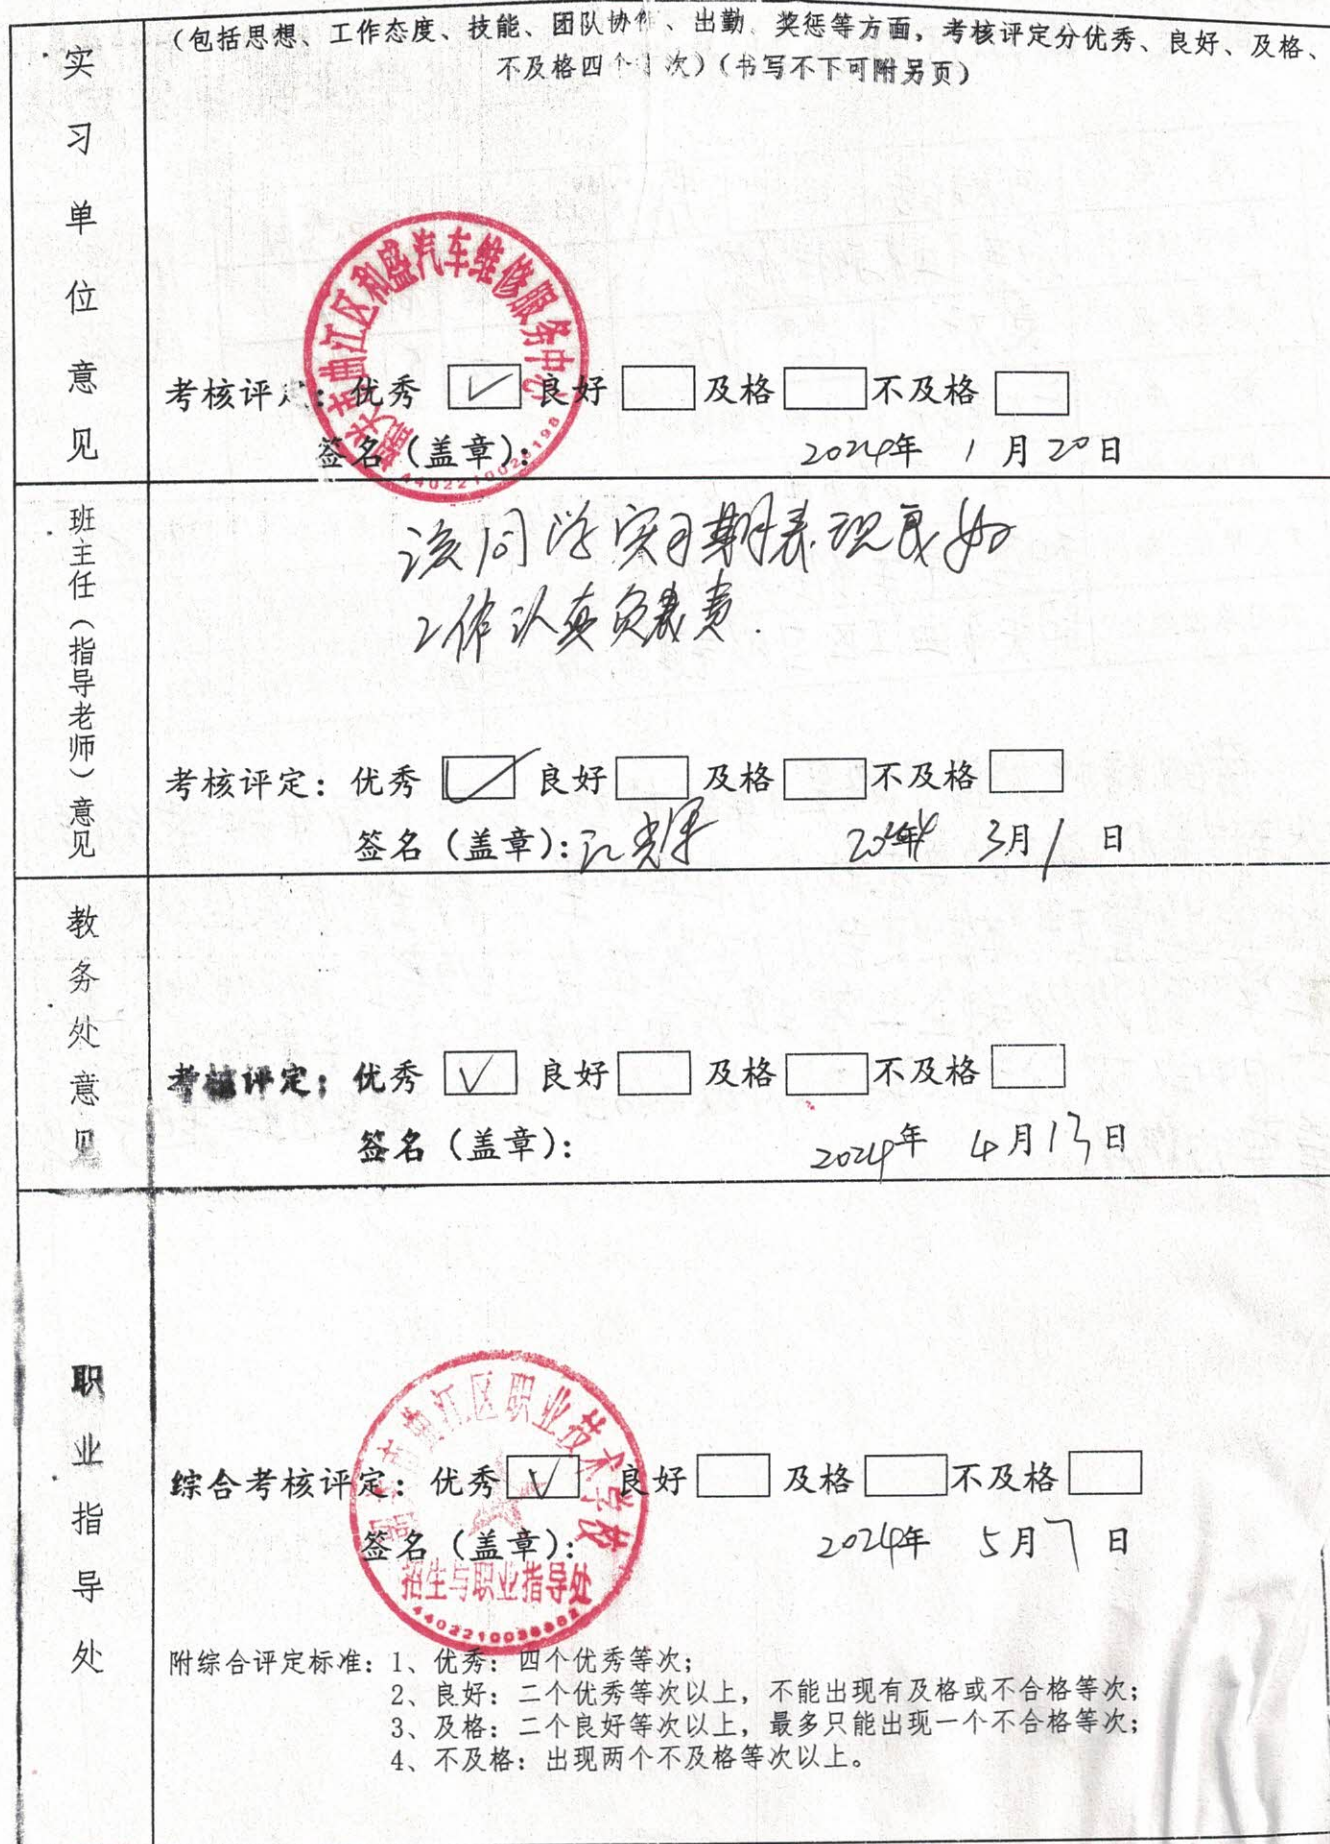 实习单位意见
(包括思想、工作态度、技能、团队协作、出勤、奖惩等方面，考核评定分优秀、良好、及格、
不及格四个等次)(书写不下可附另页)
曲江区和盛汽车维修服务中心
考核评定：优秀 ✓ 良好 及格 不及格
签名（盖章）： 2024年 1月20日
班主任（指导老师）意见
该同学实习期表现良好
工作认真负责.
考核评定：优秀 ✓ 良好 及格 不及格
签名（盖章）： 2024年 3月1日
教务处意见
考核评定：优秀 ✓ 良好 及格 不及格
签名（盖章）： 2024年 4月13日
职业指导处
市曲江区职业技术学校
综合考核评定：优秀 ✓ 良好 及格 不及格
签名（盖章）： 2024年 5月7日
招生与职业指导处
附综合评定标准：1、优秀：四个优秀等次；
2、良好：二个优秀等次以上，不能出现有及格或不合格等次；
3、及格：二个良好等次以上，最多只能出现一个不合格等次；
4、不及格：出现两个不及格等次以上。